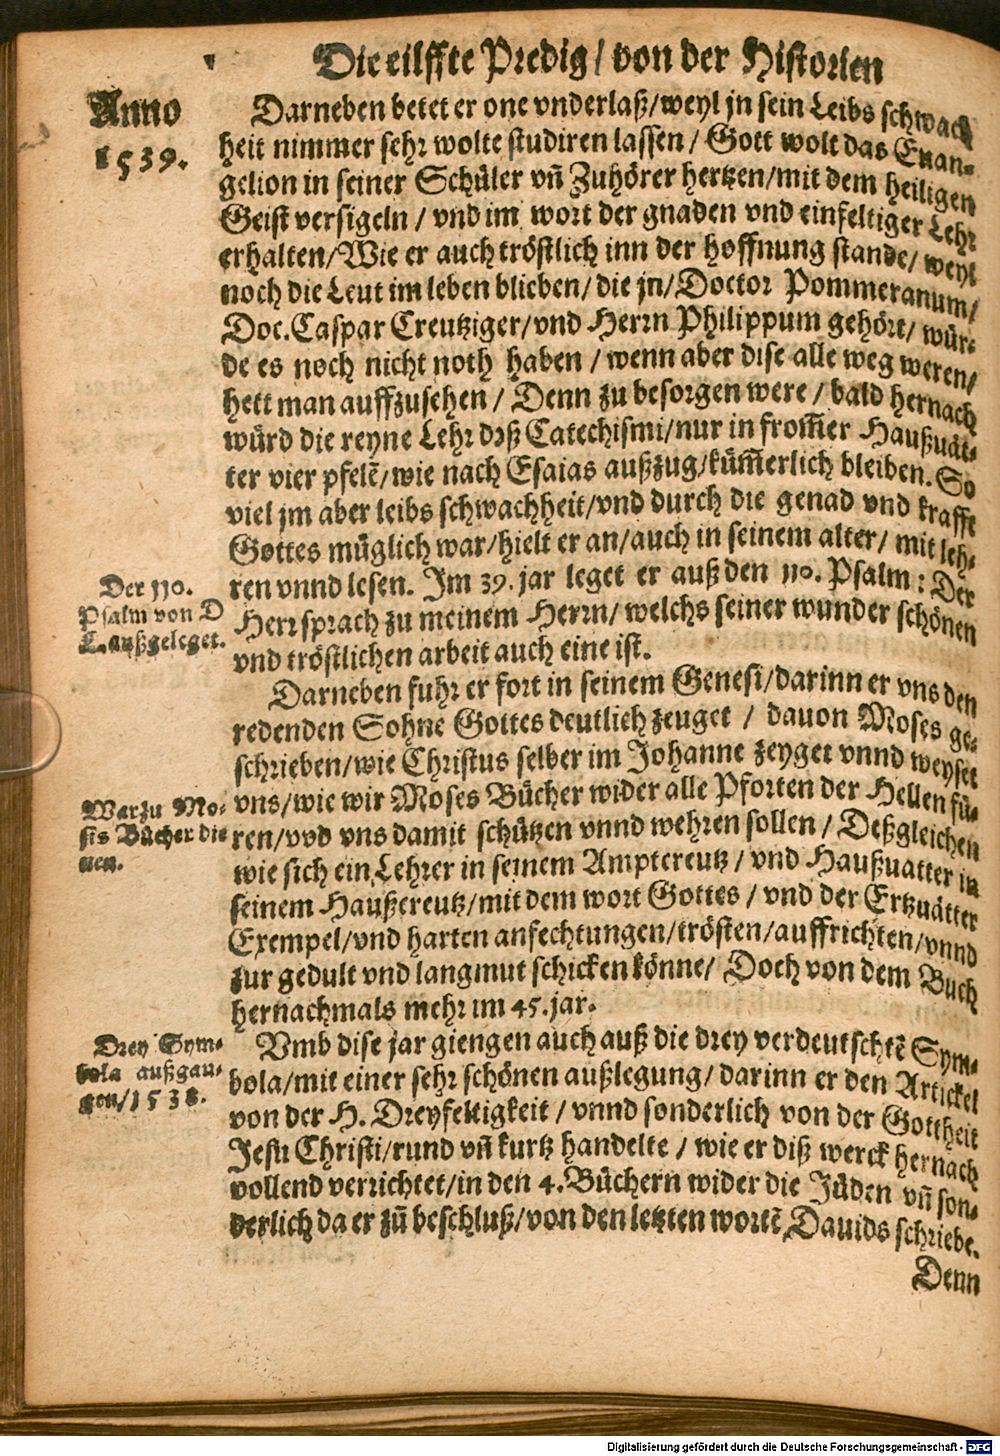 Die eilffte Predig / von der Historien
Anno
1539.
Darneben betet er one vnderlaß/weyl jn sein Leibs schwach
heit nimmer sehr wolte studiren lassen / Gott wolt das Euan-
gelion in seiner Schüler vn̄ Zuhörer hertzen/mit dem heiligen
Geist versigeln / vnd im wort der gnaden vnd einfeltiger Lehr
erhalten/Wie er auch tröstlich inn der hoffnung stande/ weyl
noch die Leut im leben blieben/ die jn/Doctor Pommeranum/
Doc.Caspar Creutziger/vnd Herrn Philippum gehört/ wür-
de es noch nicht noth haben / wenn aber dise alle weg weren/
hett man auffzusehen / Denn zu besorgen were / bald hernach
würd die reyne Lehr dzß Catechismi/nur in from̄er Haußuät-
ter vier pfelē/wie nach Esaias außzug/küm̄erlich bleiben. So
viel jm aber leibs schwachheit/vnd durch die genad vnd krafft
Gottes müglich war/hielt er an/auch in seinem alter/ mit leh-
ren vnnd lesen. Im 39. jar leget er auß den 110. Psalm: Der
Herr sprach zu meinem Herrn/ welchs seiner wunder schönen
vnd tröstlichen arbeit auch eine ist.
Der 110.
Psalm von D
L. außgeleget.
Darneben fuhr er fort in seinem Genesi/darinn er vns den
redenden Sohne Gottes deutlich zeuget / dauon Moses ge-
schrieben/wie Christus selber im Johanne zeyget vnnd weyset
vns/wie wir Moses Bücher wider alle Pforten der Hellen fü-
ren/vvd vns damit schützen vnnd wehren sollen / Deßgleichen
wie sich ein Lehrer in seinem Amptcreutz / vnd Haußuatter in
seinem Haußcreutz/mit dem wort Gottes / vnd der Ertzuätter
Exempel/vnd harten anfechtungen/trösten/auffrichten/vnnd
zur gedult vnd langmut schicken könne/ Doch von dem Buch
hernachmals mehr im 45. jar.
Warzu Mo-
sis Bücher die
nen.
Vmb dise jar giengen auch auß die drey verdeutschtē Sym-
bola/mit einer sehr schönen außlegung/ darinn er den Artickel
von der H. Dreyfeltigkeit / vnnd sonderlich von der Gottheit
Jesu Christi/rund vn̄ kurtz handelte / wie er diß werck hernach
vollend verrichtet/in den 4. Büchern wider die Jüden vn̄ son-
derlich da er zū beschluß/von den letzten wortē Dauids schriebe.
Drey Sym-
bola außgan-
gen/1538.
Denn
Digitalisierung gefördert durch die Deutsche Forschungsgemeinschaft - DFG